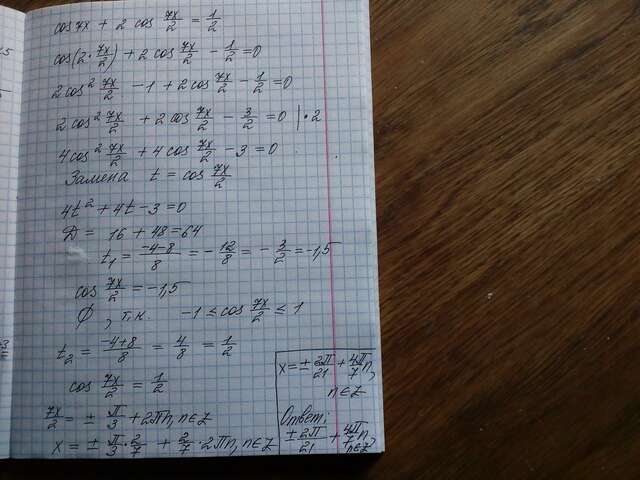 cos7x + 2 cos 7x/2 = 1/2
cos(2·7x/2) + 2 cos 7x/2 - 1/2 = 0
2cos² 7x/2 - 1 + 2cos 7x/2 - 1/2 = 0
2cos² 7x/2 + 2cos 7x/2 - 3/2 = 0 |·2
4cos² 7x/2 + 4cos 7x/2 - 3 = 0
Замена t = cos 7x/2
4t² + 4t - 3 = 0
Д = 16 + 48 = 64
t₁ = (-4-8)/8 = -12/8 = -3/2 = -1,5
cos 7x/2 = -1,5
Ø, т.к. -1 ≤ cos 7x/2 ≤ 1
t₂ = (-4+8)/8 = 4/8 = 1/2
cos 7x/2 = 1/2
7x/2 = ± π/3 + 2πn, n∈Z
x = ± π/3 · 2/7 + 2/7 · 2πn, n∈Z
x = ± 2π/21 + 4π/7 n,
n∈Z
Ответ:
± 2π/21 + 4π/7 n,
n∈Z